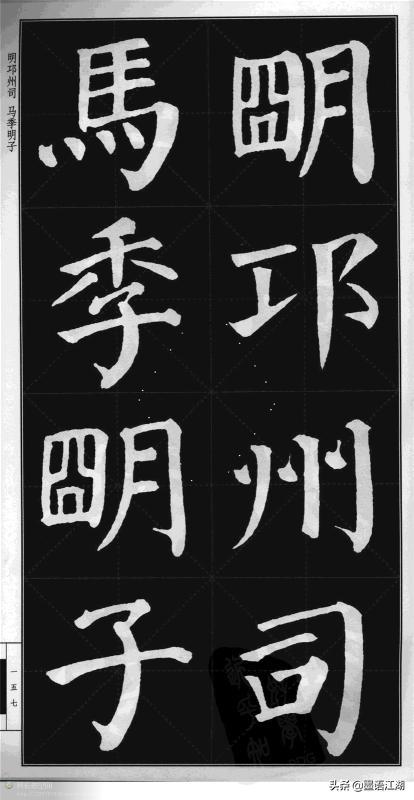 朙邛州司
馬季朙子
明邛州司 马季明子
一五七
头条 @墨语江湖